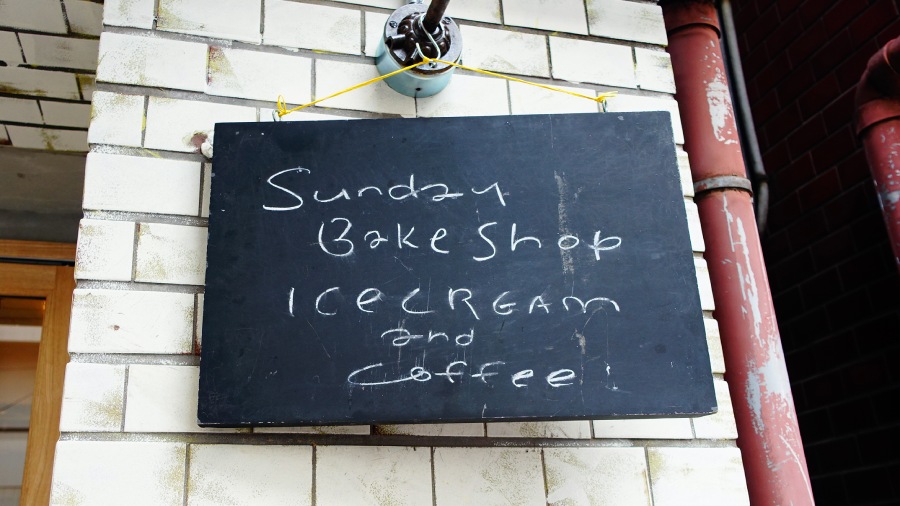 Sunday
Bake Shop
ICeCREAM
and
Coffee!